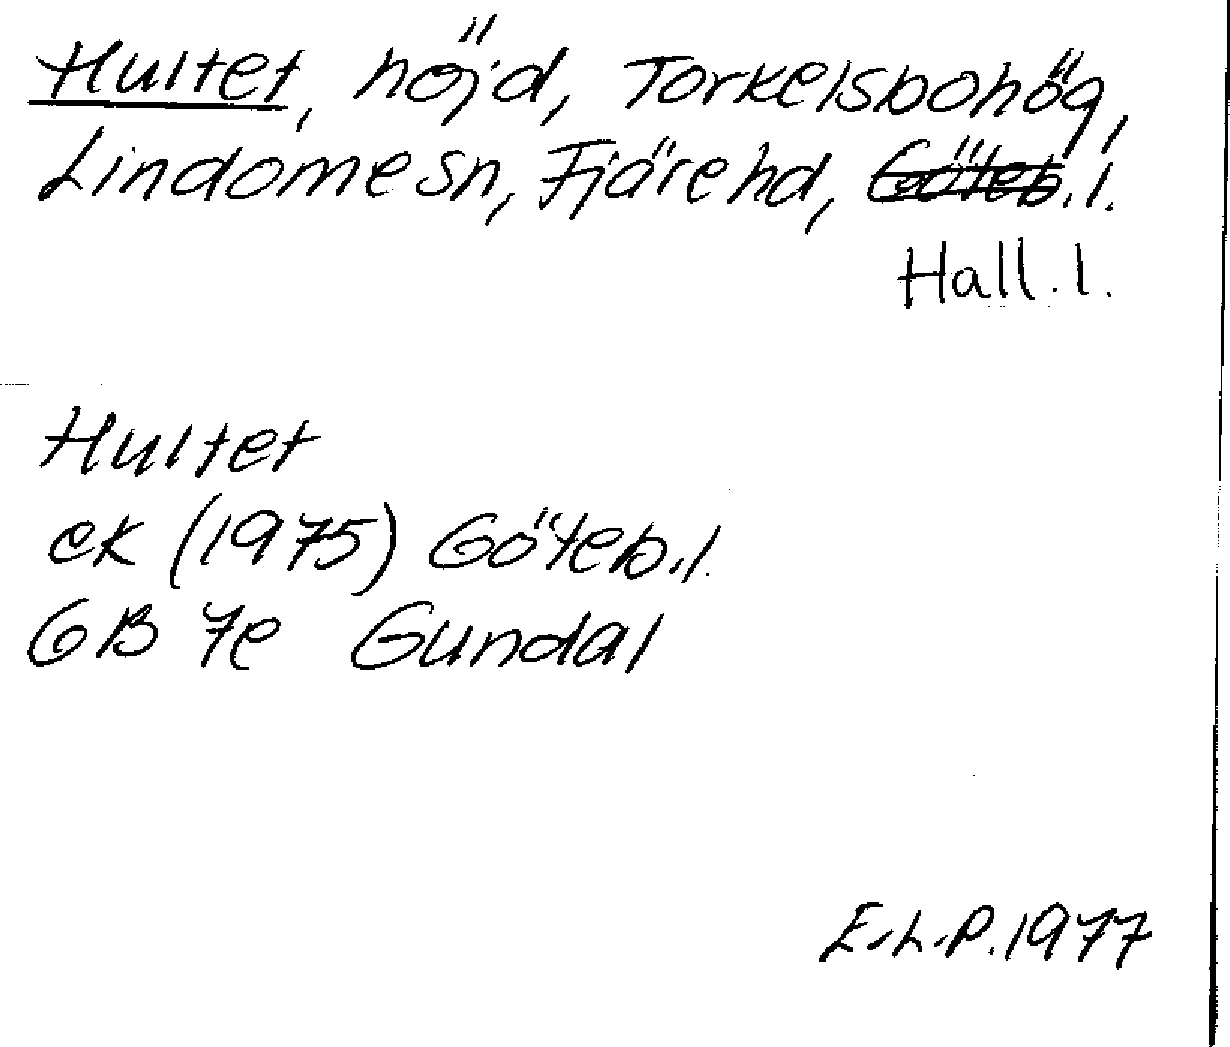 Hultet, höjd, Torkelsbohög,
Lindome sn, Fjäre hd, Göteb.l.
Hall.l.
Hultet
ek (1975) Göteb.l.
GB 7e Gundal
E.L.P. 1977